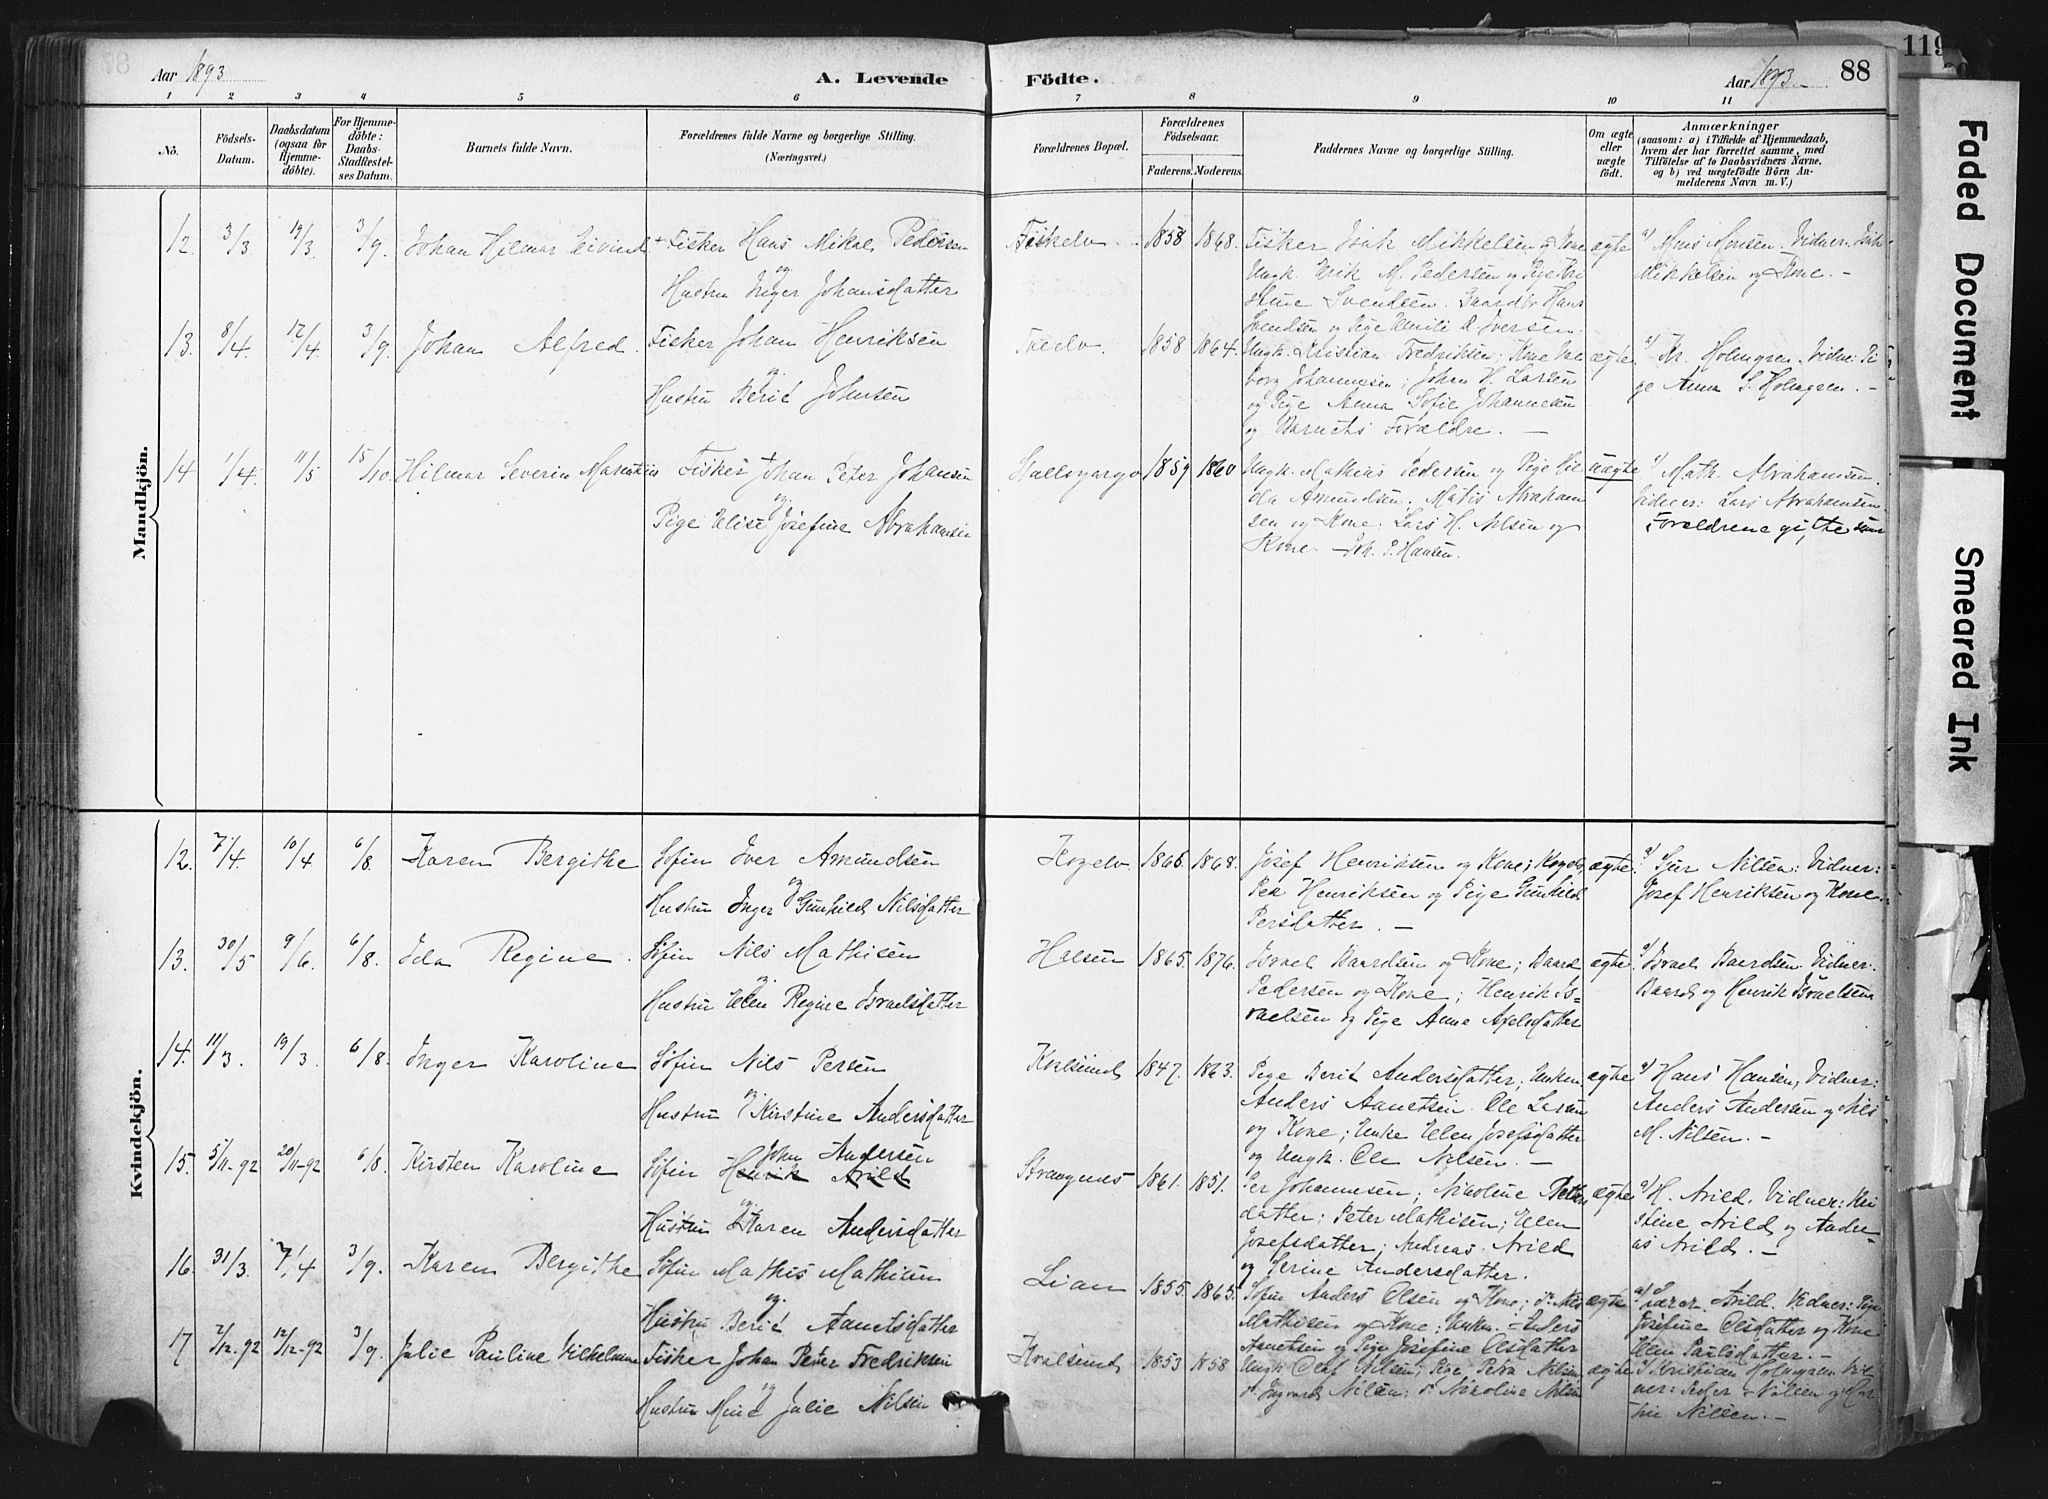 Aar 1893
A. Levende
Födte.
Aar 1893.
88
119
1 2 3 4 5 6 7 8 9 10 11
No.
Födsels-
Datum.
Daabsdatum
(ogsaa for
Hjemme-
döbte).
For Hjemme-
döbte:
Daabs-
Stadfæstel-
ses Datum.
Barnets fulde Navn.
Forældrenes fulde Navne og borgerlige Stilling.
(Næringsvei.)
Forældrenes Bopæl.
Forældrenes
Födselsaar.
Faderens. Moderens.
Faddernes Navne og borgerlige Stilling.
Om ægte
eller
uægte
födt.
Anmærkninger
(saasom: a) i Tilfælde af Hjemmedaab,
hvem der har forrettet samme, med
Tilföielse af to Daabsvidners Navne.
og b) ved uægtefödte Börn An-
melderens Navn m. V.)
Mandkjön.
12. 3/3. 19/3. 3/9. Johan Hilmar Eivind + Fisker Hans Mikal Pedersen
og
Hustru Inger Johansdatter
Fiskelv 1858 1868.
Fisker Isak Mikkelsen og Kone
Ungk. Erik M. Pedersen og Pige Kri
stine Svendsen. Gaardbr Hans
Svendsen og Pige Emili A. Iversen.
ægte
a) Mons Monsen. Vidner: Isak
Mikkelsen og Kone. —
13. 8/4. 12/4. 3/9. Johan Alfred. Fisker Johan Henriksen
og
Hustru Berit Johnsen
1858 1864.
Ungk. Kristian Fredriksen; Kone
borg Johannesen; Johan H. Larsen
og Pige Anna Sofie Johannesen
og Barnets Forældre. —
ægte.
a) Kr. Holmgren. Vidne: Pi
ge Anna S. Holmgren. —
14 1/4. 11/5 15/10. Hilmar Severin Fisker Johan Peter Johansen
og
Pige Elise Josefine Abrahamsen
1859 1860
Ungk. Mathias Pedersen og Pige
da Amundsen. Matis Abraham
sen og Kone. Lars H. Nilsen og
Kone. — Joh. P. Hansen.
uægte
a) Math. Abrahamsen.
Vidner: Lars Abrahamsen
Forældrene gifte
Kvindekjön.
12. 7/4 10/4 6/8. Karen Bergithe Söfin Iver Amundsen
og
Hustru Inger Gunhild Nilsdatter
Kogelv 1865 1868.
Josef Henriksen og Kone; Kogelv,
Peder Henriksen og Pige Gunhild
Persdatter. —
ægte.
a) Sjur Nilsen: Vidner:
Josef Henriksen og Kone.
13. 30/5 9/6. 6/8. Ida Regine. Söfin Nils Mathisen
og
Hustru Elen Regine Israelsdatter
1865. 1876.
Israel Baardsen og Kone; Baard
Pedersen og Kone; Henrik Is-
raelsen og Pige Anne Axelsdatter
ægte.
a) Israel Baardsen. Vidner.
Baard og Henrik Israelsen
14. 11/3. 19/3. 6/8. Inger Karoline Söfin Nils Persen
og
Hustru Kirstine Andersdatter
Kvalsund 1847. 1863.
Pige Berit Andersdatter; Unkm.
Anders Aanetsen. Ole Larsen
og Kone; Enke Elen Josefsdatter
og Ungk. Ole Nilsen. —
ægte
a) Hans Hansen, Vidner:
Anders Andersen og Nils
M. Nilsen. —
15. 5/11-92 20/11-92 6/8. Kirsten Karoline John Andersen
Söfin Henrik Arild
og
Hustru Karen Andersdatter
Strangnæs 1861. 1851.
Per Johannesen; Nikoline Peders
datter; Peter Mathisen; Elen
Josefsdatter; Andreas Arild
og Serine Andersdatter.
ægte
a) H. Arild. Vidner: Kri
stine Arild og Andre-
as Arild. —
16. 31/3. 7/4 3/9. Karen Bergithe Söfin Mathis Mathisen
og
Hustru Berit Aanetsdatter
1855. 1865.
Söfin Anders Olsen og Kone; do. Nils
Mathisen og Kone; Unkm. Anders
Aanetsen og Pige Josefine Olsdatter
ægte
a) Lærer Arild. Vidner: Pige
Josefine Olsdatter og Kone
Elen Paulsdatter. —
17 2/12-92 12/12-92 3/9. Julie Pauline Vilhelmine Fisker Johan Peter Fredriksen
og
Hustru Julie Nilsen
Kvalsund 1853 1858
Ungk. Olaf Nilsen; Pige Petra Nilsen
do. Ingvard Nilsen; do. Nicoline Nilsen
ægte
a) Kristian Holmgren Vid
ner: Peder Nilsen og Mar
thie Nilsen. —
Faded Document
Smeared Ink